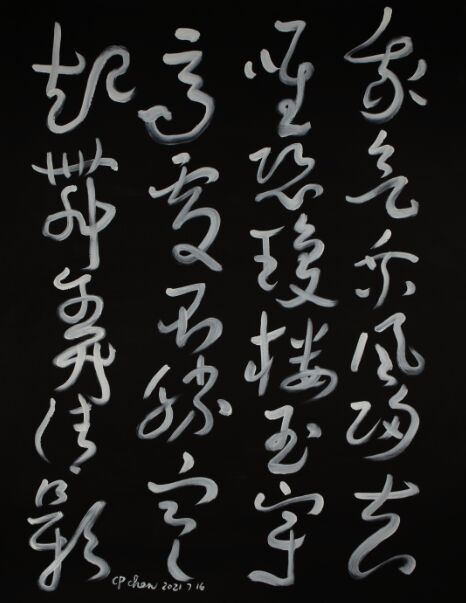 我欲乘風歸去
惟恐瓊楼玉宇
高處不勝寒
起舞弄清影
CP Chen 2021 7 16